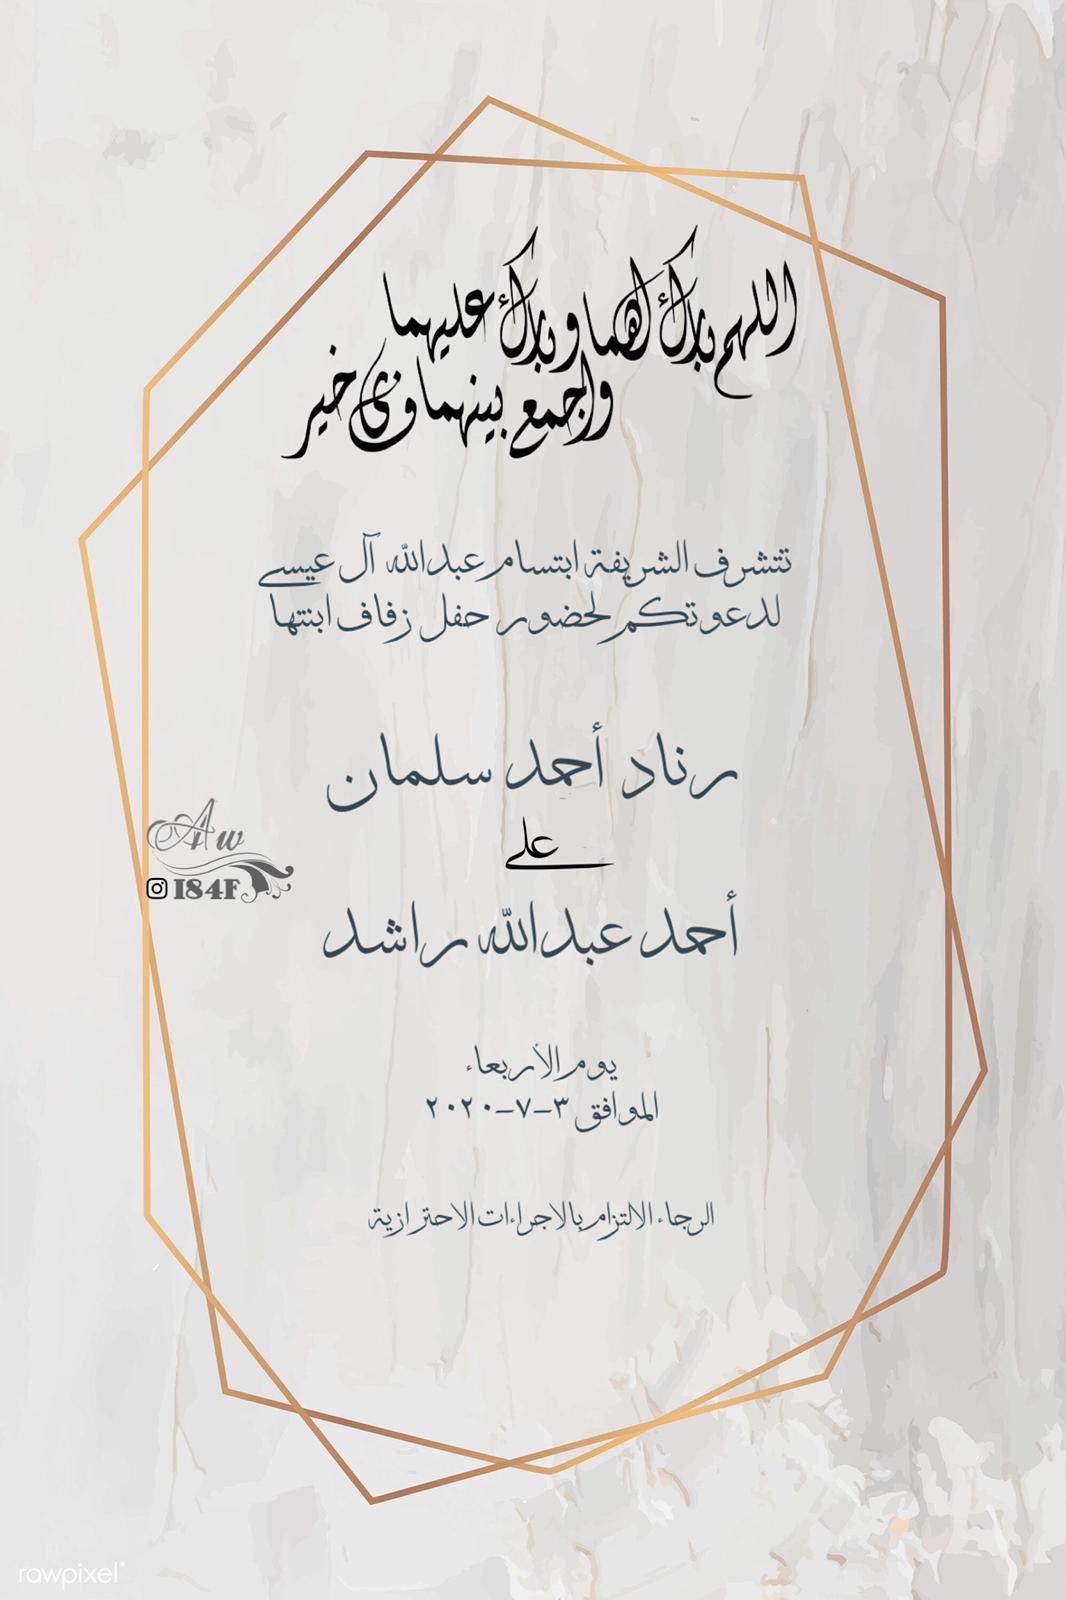 اللهم بارك لهما و بارك عليهما
واجمع بينهما في خير
تتشرف الشريفة ابتسام عبدالله آل عيسى
لدعوتكم لحضور حفل زفاف ابنتها
رناد أحمد سلمان
على
أحمد عبدالله راشد
Aw
184F
يوم الأربعاء
الموافق ٣-٧-٢٠٢٠
الرجاء الالتزام بالاجراءات الاحترازية
rawpixel